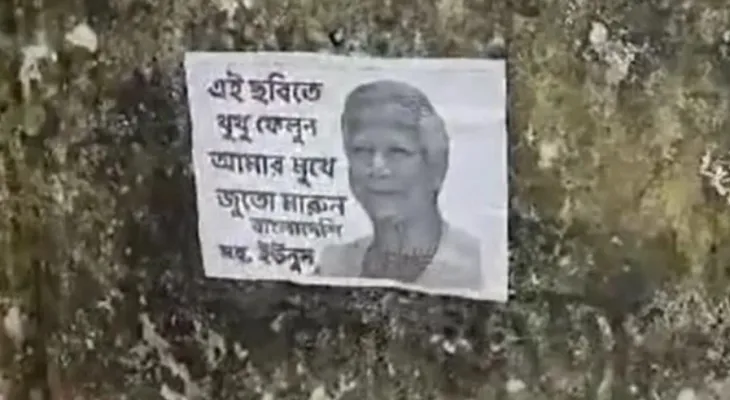 এই ছবিতে
থুথু ফেলুন
আমার মুখে
জুতো মারুন
বাংলাদেশি
মহ. ইউনুস